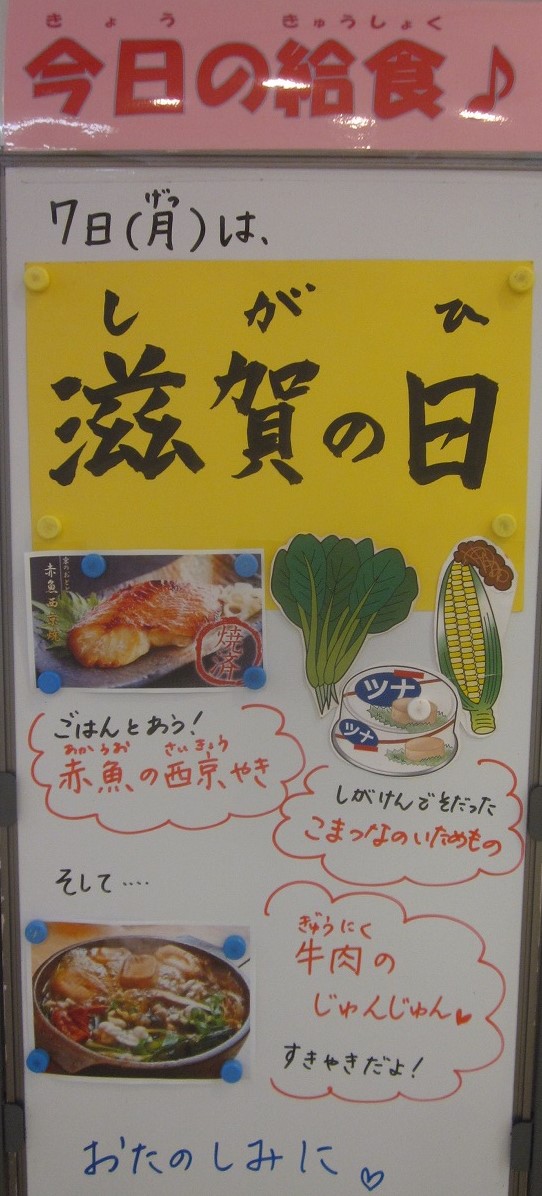 きょう きゅうしょく
今日の給食♪
7日(月)は、
げつ
しがひ
滋賀の日
赤魚西京焼
焼済
ツナ
ツナ
ごはんとあう!
あかうお さいきょう
赤魚の西京やき
しがけんでそだった
こまつなのいためもの
そして‥‥
ぎゅうにく
牛肉の
じゅんじゅん♥
すきやきだよ!
おたのしみに♡